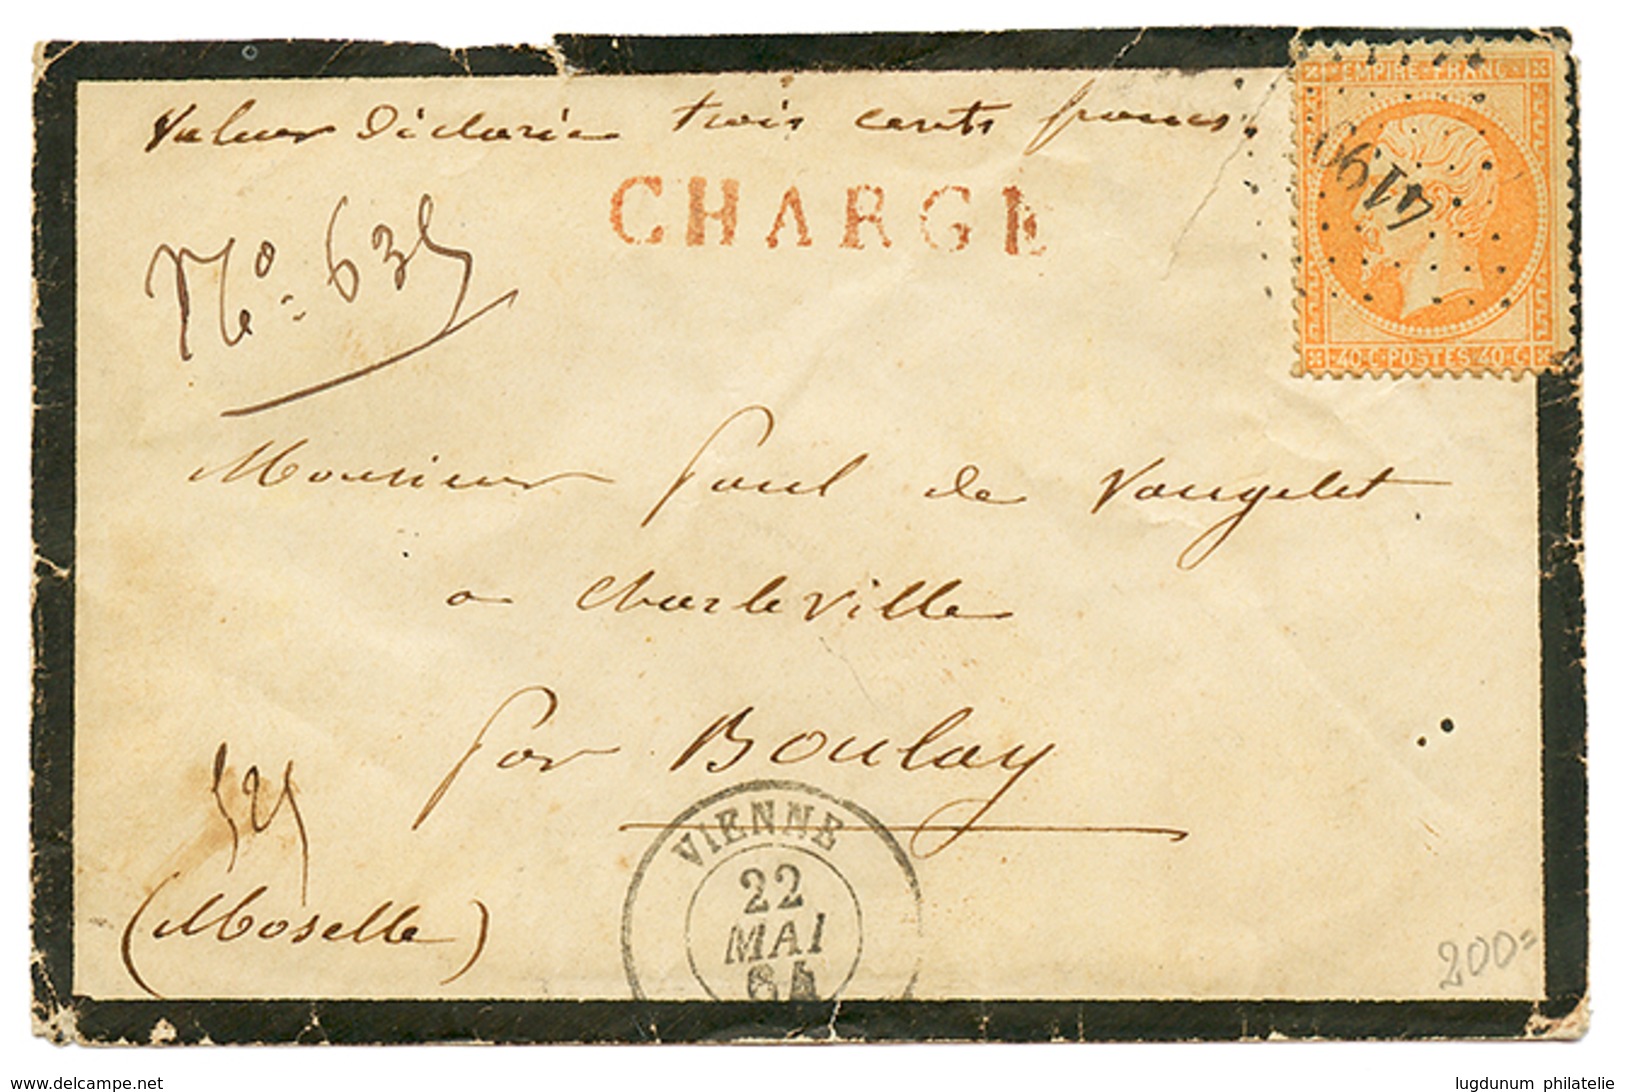 Valeur Déclarée trois cents francs.
EMPIRE FRANC
4190
CHARGE
No. 635
40·C·POSTES·40·C
Monsieur Paul de Vaugelet
a Charleville
par Boulay
525
VIENNE
22
MAI
64
(Moselle)
200=
www.delcampe.net
lugdunum philatelie